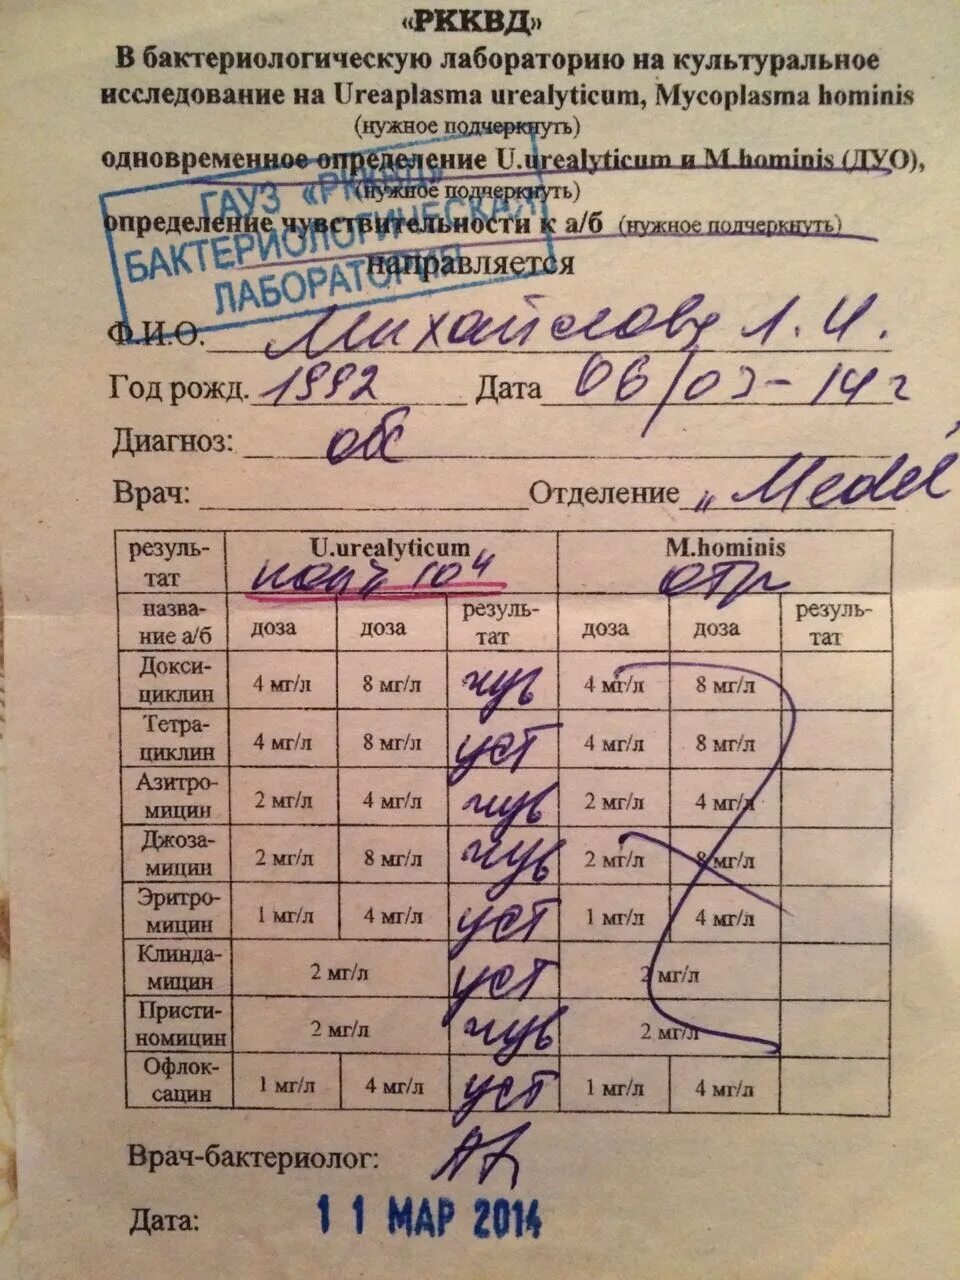 «РККВД»
В бактериологическую лабораторию на культуральное
исследование на Ureaplasma urealyticum, Mycoplasma hominis
(нужное подчеркнуть)
одновременное определение U.urealyticum и M.hominis (ДУО),
(нужное подчеркнуть)
определение чувствительности к а/б (нужное подчеркнуть)
направляется
ГАУЗ «РККВД»
БАКТЕРИОЛОГИЧЕСКАЯ
ЛАБОРАТОРИЯ
Ф.И.О. Михайлова Л. И.
Год рожд. 1992 Дата 06/03-14 г
Диагноз: обс
Врач: Отделение „Medel
резуль- U.urealyticum M.hominis
тат 10⁴ отр
назва- доза доза резуль- доза доза резуль-
ние а/б тат тат
Докси- 4 мг/л 8 мг/л чув 4 мг/л 8 мг/л
циклин
Тетра- 4 мг/л 8 мг/л уст 4 мг/л 8 мг/л
циклин
Азитро- 2 мг/л 4 мг/л чув 2 мг/л 4 мг/л
мицин
Джоза- 2 мг/л 8 мг/л чув 2 мг/л 8 мг/л
мицин
Эритро- 1 мг/л 4 мг/л уст 1 мг/л 4 мг/л
мицин
Клинда- 2 мг/л уст 2 мг/л
мицин
Присти- 2 мг/л чув 2 мг/л
номицин
Офлок- 1 мг/л 4 мг/л уст 1 мг/л 4 мг/л
сацин
Врач-бактериолог:
Дата: 11 МАР 2014